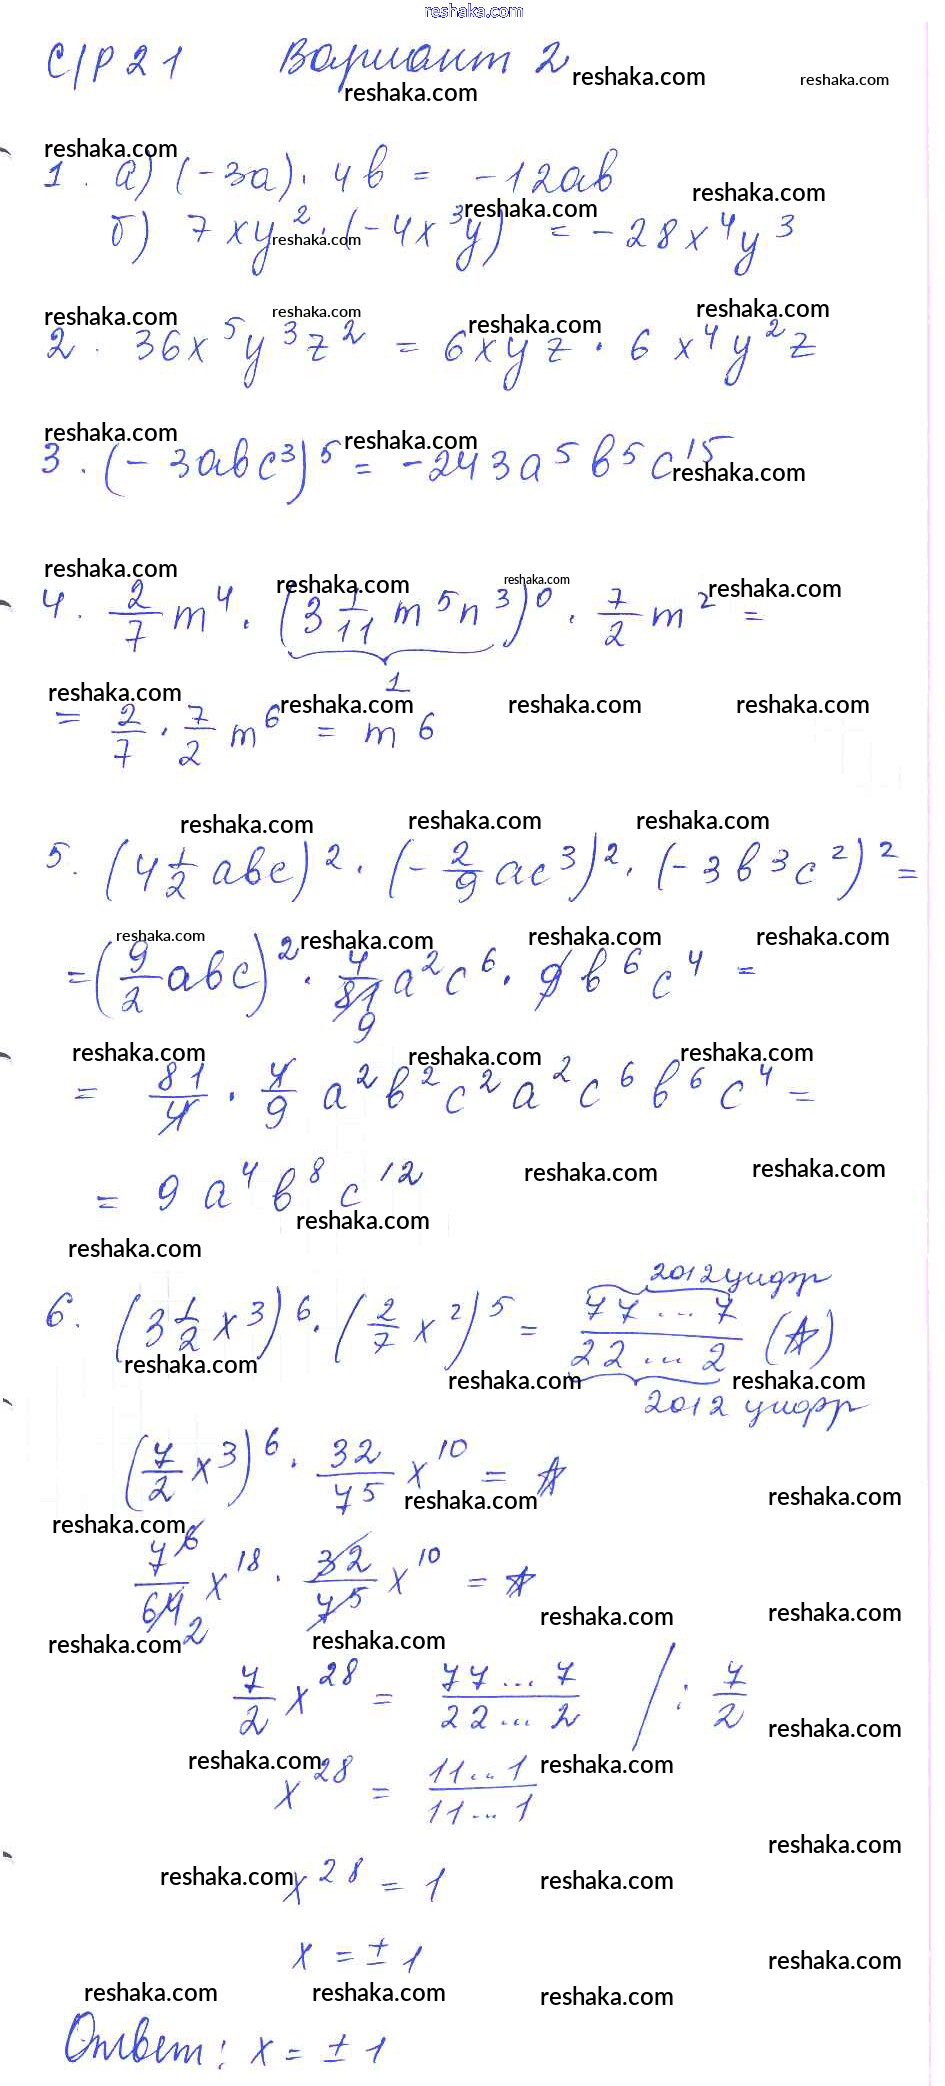 reshaka.com
С/Р 21 Вариант 2
1. а) (-3a) · 4b = -12ab
б) 7xy² · (-4x³y) = -28x⁴y³
2. 36x⁵y³z² = 6xyz · 6x⁴y²z
3. (-3abc³)⁵ = -243a⁵b⁵c¹⁵
4. 2/7 m⁴ · (3 1/11 m⁵n³)⁰ · 7/2 m² =
1
= 2/7 · 7/2 m⁶ = m⁶
5. (4 1/2 abc)² · (-2/9 ac³)² · (-3b³c²)² =
= (9/2 abc)² · 4/81 a²c⁶ · 9b⁶c⁴ =
9
= 81/4 · 4/9 a²b²c²a²c⁶b⁶c⁴ =
= 9a⁴b⁸c¹²
2012 цифр
6. (3 1/2 x³)⁶ · (2/7 x²)⁵ = 77...7/22...2 (☆)
2012 цифр
(7/2 x³)⁶ · 32/7⁵ x¹⁰ = ☆
7⁶/64 x¹⁸ · 32/7⁵ x¹⁰ = ☆
2
7/2 x²⁸ = 77...7/22...2 / : 7/2
x²⁸ = 11...1/11...1
x²⁸ = 1
x = ± 1
Ответ: x = ± 1